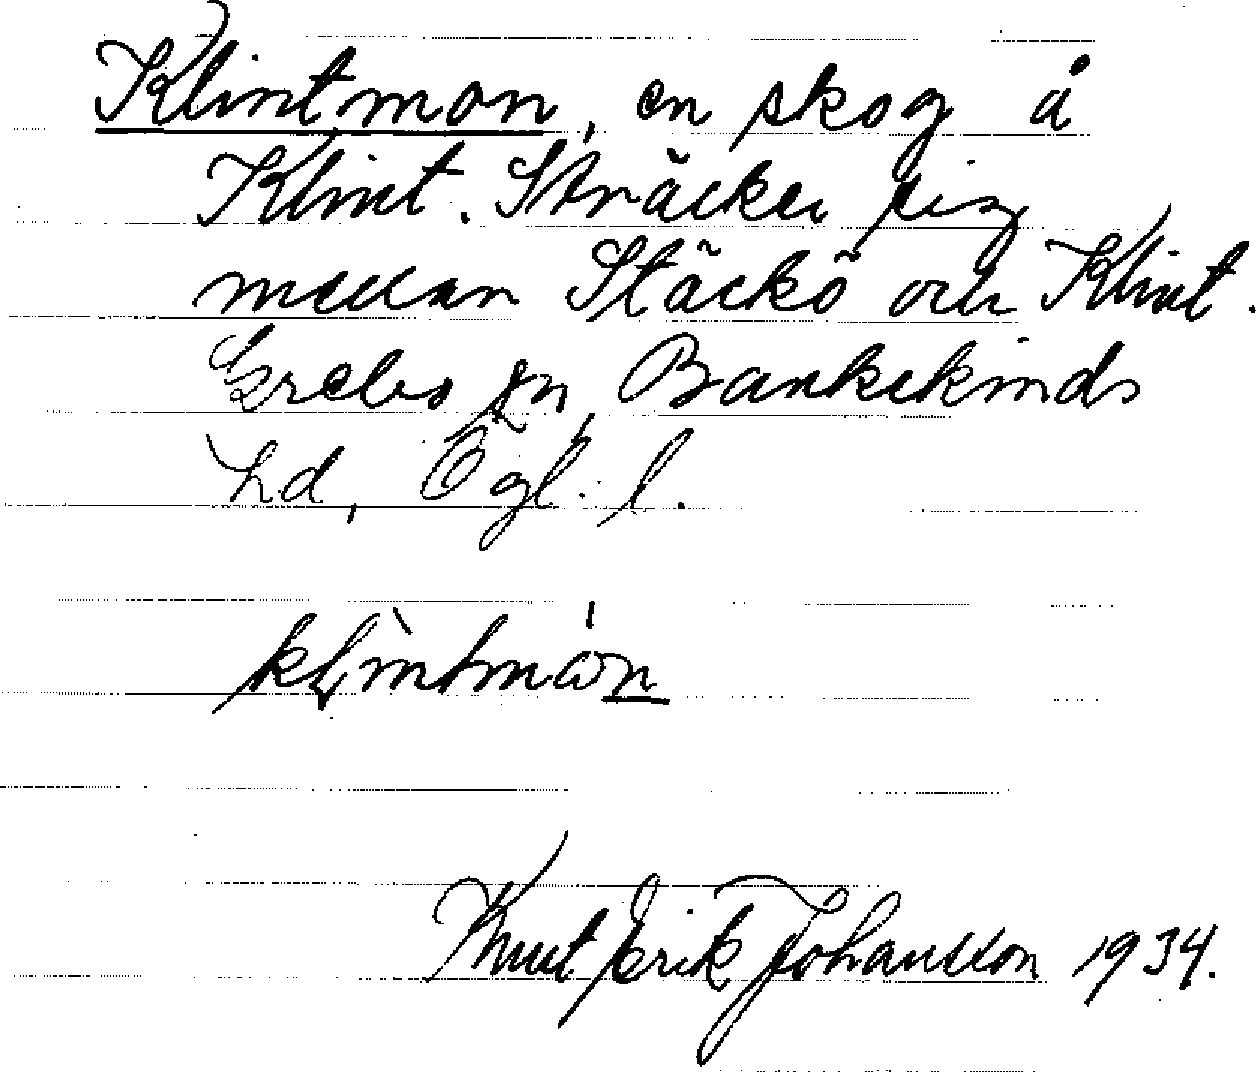 Klintmon, en skog å
Klint. Sträcker sig
mellan Stäckö och Klint.
Grebo sn, Bankekinds
hd, Ögl. l.
Knut Erik Johansson 1934.